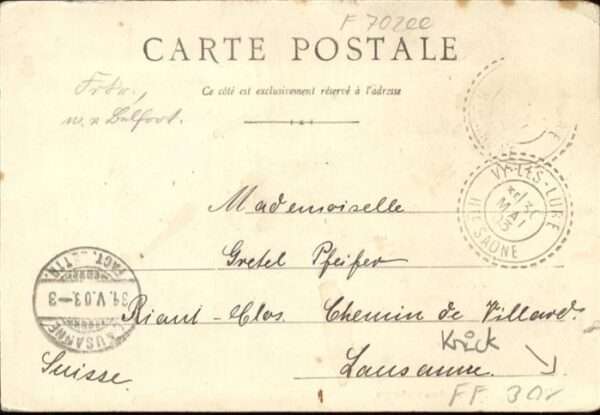 F 702ee
CARTE POSTALE
Ce côté est exclusivement réservé à l'adresse
w. n Belfort.
VY-LÈS-LURE
30
MAI
03
Hte SAÔNE
Mademoiselle
Gretel Pfeifer
FACT. LETTR.
31. V. 03.–3
LAUSANNE
Riant-Clos. Chemin de Villard.
Suisse.
Lausanne.
FF 30r